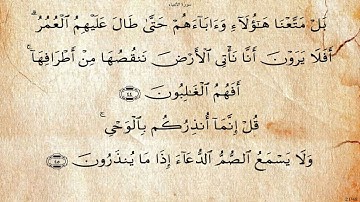 سورة الأنبياء
بَلْ مَتَّعْنَا هَٰٓؤُلَآءِ وَءَابَآءَهُمْ حَتَّىٰ طَالَ عَلَيْهِمُ ٱلْعُمُرُ ۗ
أَفَلَا يَرَوْنَ أَنَّا نَأْتِى ٱلْأَرْضَ نَنقُصُهَا مِنْ أَطْرَافِهَآ ۚ
أَفَهُمُ ٱلْغَٰلِبُونَ ٤٤
قُلْ إِنَّمَآ أُنذِرُكُم بِٱلْوَحْىِ ۚ
وَلَا يَسْمَعُ ٱلصُّمُّ ٱلدُّعَآءَ إِذَا مَا يُنذَرُونَ ٤٥